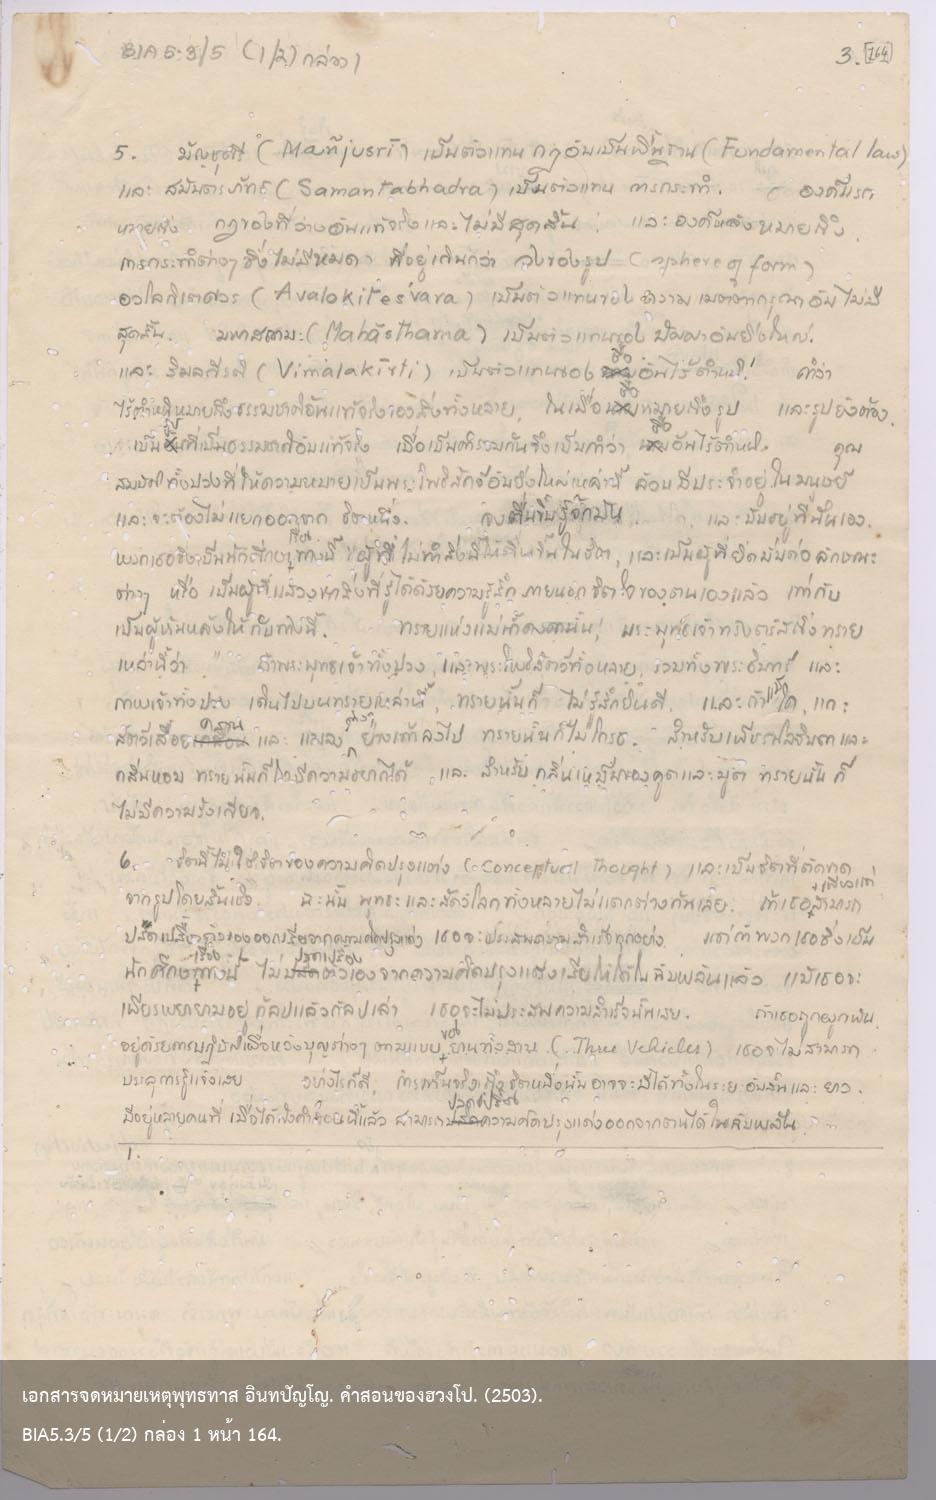 BIA 5.3/5 (1/2) กล่อง 1
3. 164
5. มัญชุศรี (Mañjusri) เป็นตัวแทน กฎอันเป็นพื้นฐาน (Fundamental law)
และ สมันตรภัทร (Samantabhadra) เป็นตัวแทน การกระทำ. องค์แรก
หมายถึง กฎของที่ว่างอันแท้จริงและไม่มีสุดสิ้น และองค์หลังหมายถึง
การกระทำต่างๆ ซึ่งไม่มีหมด ที่อยู่เกินกว่า วงของรูป (sphere of form)
อวโลกิเตศวร (Avalokiteśvara) เป็นตัวแทนของ ความเมตตากรุณาอันไม่มี
สุดสิ้น. มหาสถามะ (Mahāsthama) เป็นตัวแทนของ ปัญญาอันยิ่งใหญ่.
และ วิมลกีรติ (Vimalakīrti) เป็นตัวแทนของ ชื่ออันไร้ตำหนิ. คำว่า
ไร้ตำหนิหมายถึงธรรมชาติอันแท้จริงของสิ่งทั้งหลาย, ในเมื่อ ชื่อ หมายถึง รูป และรูปยังต้อง
เป็นสิ่งที่เป็นธรรมชาติอันแท้จริง เมื่อเป็นคำรวมกันจึงเป็นคำว่า ชื่ออันไร้ตำหนิ. คุณ
สมบัติทั้งปวงที่ให้ความหมายเป็นพระโพธิสัตว์อันยิ่งใหญ่เหล่านี้ ล้วนมีประจำอยู่ในมนุษย์
และจะต้องไม่แยกออกจาก จิตหนึ่ง. จงตื่นขึ้นรู้จักมัน และมันอยู่ที่นั่นเอง.
พวกเธอซึ่งเป็นนักศึกษาเรื่องทางนี้ ผู้ที่ไม่ทำสิ่งนี้ให้ตื่นขึ้นในจิต, และเป็นผู้ที่ยึดมั่นต่อลักษณะ
ต่างๆ หรือ เป็นผู้ที่แสวงหาสิ่งที่รู้ได้ด้วยความรู้สึก ภายนอกจิตใจของตนเองแล้ว เท่ากับ
เป็นผู้หันหลังให้กับทางนี้. ทรายแห่งแม่น้ำคงคานั้น, พระพุทธเจ้าทรงตรัสถึงทราย
เหล่านี้ว่า " ถ้าพระพุทธเจ้าทั้งปวง, และพระโพธิสัตว์ทั้งหลาย, รวมทั้งพระอินทร์ และ
เทพเจ้าทั้งปวง เดินไปบนทรายเหล่านี้, ทรายนั้นก็ ไม่รู้สึกยินดี. และถ้า โค, แกะ
สัตว์เลื้อยคลาน และ แมลงต่างๆ ย่างเท้าลงไป ทรายนั้นก็ไม่โกรธ. สำหรับเพชรพลอยจินดาและ
กลิ่นหอม ทรายนั้นก็ไม่มีความอยากได้ และ สำหรับกลิ่นเหม็นของคูตและมูต ทรายนั้นก็
ไม่มีความรังเกียจ.
6. จิตนี้ไม่ใช่จิตของความคิดปรุงแต่ง (Conceptual Thought) และเป็นจิตที่ตัดขาด
จากรูปโดยสิ้นเชิง. ฉะนั้น พุทธะ และสัตว์โลกทั้งหลายไม่แตกต่างกันเลย. เพียงแต่ถ้าเธอสามารถ
ปลดเปลื้องตัวเองออกเสียจากความคิดปรุงแต่ง เธอจะประสบความสำเร็จทุกอย่าง. แต่ถ้าพวกเธอซึ่งเป็น
นักศึกษาเรื่องทางนี้ ไม่ปลดเปลื้องตัวเองจากความคิดปรุงแต่งเสียให้ได้ในฉับพลันแล้ว แม้เธอจะ
เพียรพยายามอยู่ กัลปแล้วกัลปเล่า เธอจะไม่ประสบความสำเร็จนั้นเลย. ถ้าเธอถูกผูกพัน
อยู่ด้วยการปฏิบัติเพื่อหวังบุญต่างๆ ตามแบบของยานทั้งสาม (Three Vehicles) เธอจะไม่สามารถ
บรรลุการรู้แจ้งเลย อย่างไรก็ดี, การเห็นจริงซึ่งจิตหนึ่งนั้นอาจจะมีได้ทั้งในระยะอันสั้นและยาว.
มีอยู่หลายคนที่ เมื่อได้ฟังคำสอนนี้แล้ว สามารถปลดเปลื้องความคิดปรุงแต่งออกจากตนได้ในฉับพลัน.
1.
เอกสารจดหมายเหตุพุทธทาส อินทปัญโญ. คำสอนของฮวงโป. (2503).
BIA5.3/5 (1/2) กล่อง 1 หน้า 164.